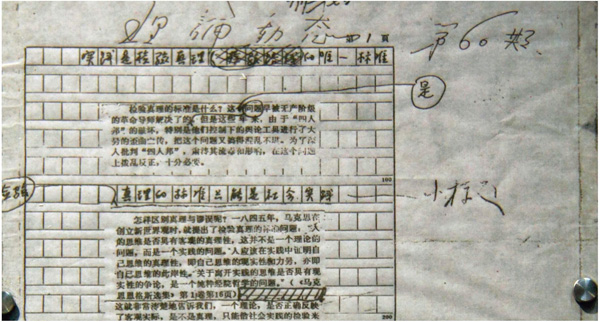 动态
第1页
第60期
实践是检验真理的唯一标准
检验真理的标准是什么?这个问题早被无产阶级
的革命导师解决了的,但是这些年来,由于“四人
帮”的破坏,特别是他们控制下的舆论工具进行了大
的歪曲宣传,把这个问题又搞得混乱不堪。为了深
入批判“四人帮”,肃清其流毒和影响,在这个问题
上拨乱反正,十分必要。
是
真理的标准只能是社会实践
小标题
怎样区别真理与谬误呢?一八四五年,马克思在
创立新世界观时,就提出了检验真理的标准问题,“人
的思维是否具有客观的真理性,这并不是一个理论的
问题,而是一个实践的问题。人应该在实践中证明自
己思维的真理性,即自己思维的现实性和力量,亦即
自己思维的此岸性。关于离开实践的思维是否具有现
实性的争论,是一个纯粹经院哲学的问题。”(《马克
思恩格斯选集》第1卷第16页)
这就非常清楚地告诉我们,一个理论,是否正确反映
了客观实际,是不是真理,只能靠社会实践的检验来
200